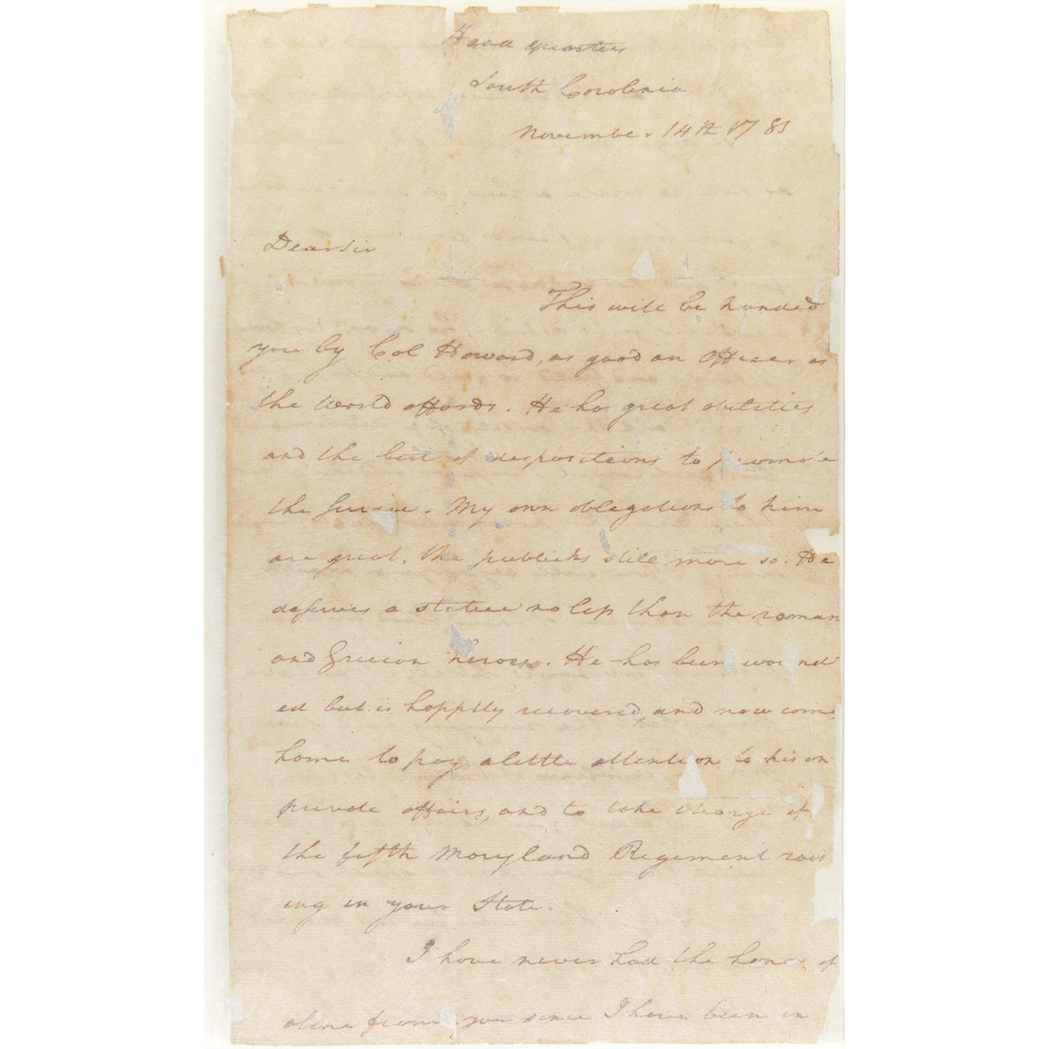 Head quarters
South Carolina
November 14th 1781
Dear Sir
This will be handed
you by Col Howard, as good an Officer as
the World affords. He has great abilities
and the best of dispositions to promote
the Service. My own obligations to him
are great, the publicks still more so. He
deserves a statue no less than the roman
and Grecian heroes. He has been wound
ed but is happily recovered and now come
home to pay a little attention to his
private affairs, and to take charge of
the fifth Maryland Regiment rais
ing in your State.
I have never had the honor of
a line from you since I have been in